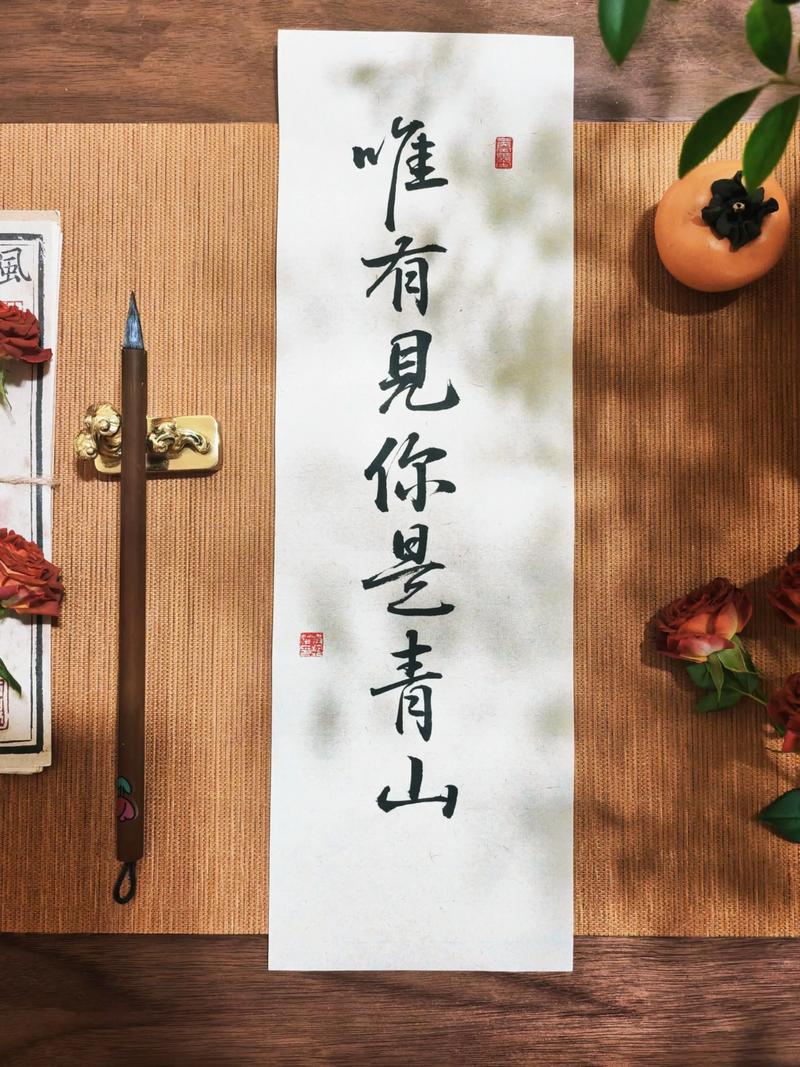 唯有見你是青山
風